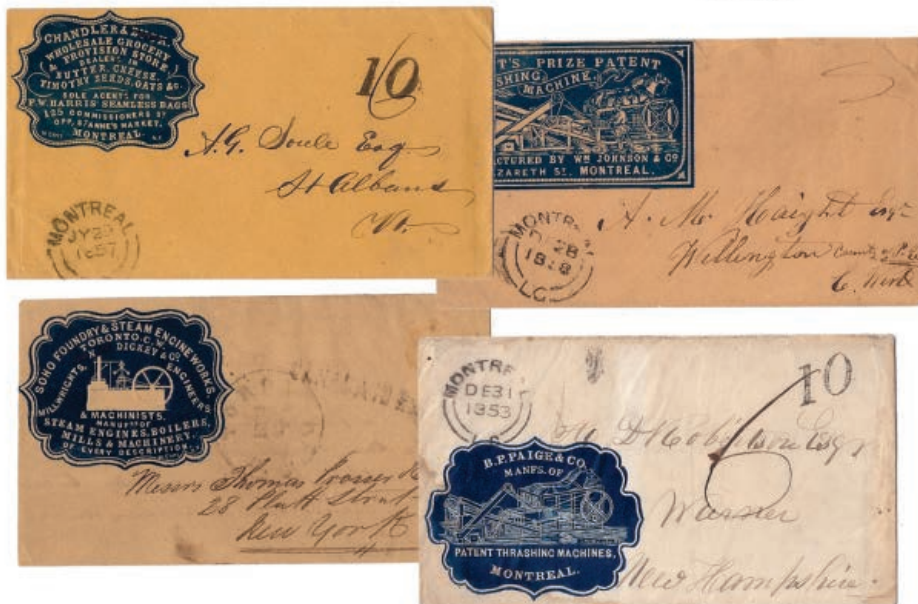 CHANDLER &
WHOLESALE GROCERY
& PROVISION STORE,
DEALERS IN
BUTTER, CHEESE,
TIMOTHY SEEDS, OATS &c.
SOLE AGENTS FOR
F.W. HARRIS' SEAMLESS BAGS
125 COMMISSIONERS ST
OPP. ST ANNE'S MARKET.
MONTREAL.
10
A.G. Soule Esq
St Albans
Vt.
MONTREAL
JY
1857
T'S PRIZE PATENT
SHING MACHINE.
ACTURED BY WM JOHNSON & CO
ZARETH ST. MONTREAL.
A. M. Haight Esqr
Wellington County of
C. West
MONTRE
28
L.C.
SOHO FOUNDRY & STEAM ENGINE WORKS
TORONTO. C.W.
N DICKEY & CO
MILLWRIGHTS, ENGINEERS
& MACHINISTS.
MANUFRS OF
STEAM ENGINES, BOILERS,
MILLS & MACHINERY,
OF EVERY DESCRIPTION.
Messrs Thomas Prosser
28 Platt Street
New York
MONTRE
DE 31
1853
L.C.
10
Esqr
Warner
New Hampshire.
B.P. PAIGE & CO.
MANFS. OF
PATENT THRASHING MACHINES,
MONTREAL.